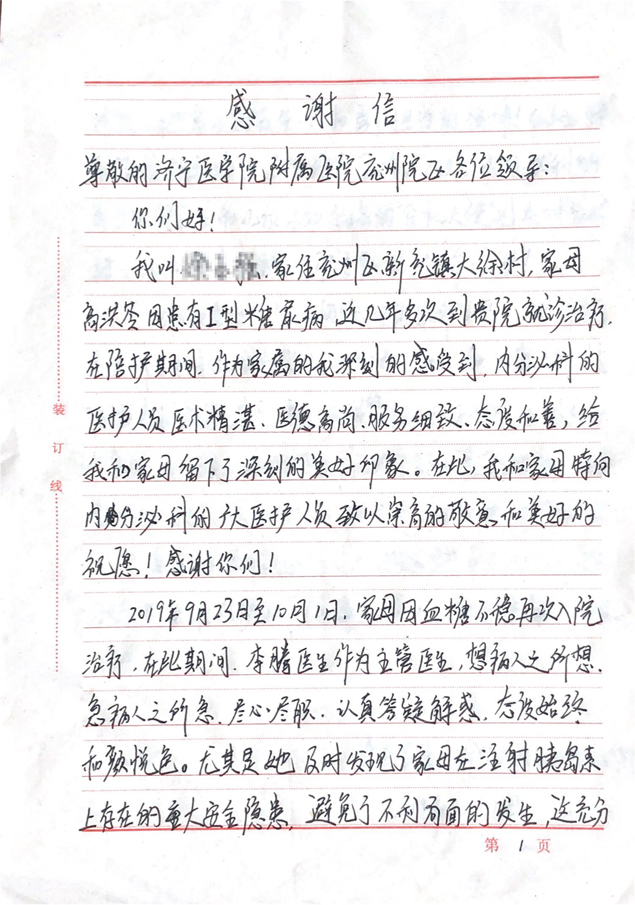 感谢信
尊敬的济宁医学院附属医院兖州院区各位领导：
你们好！
我叫 家住兖州区新兖镇大徐村，家母
高洪苓因患有I型糖尿病，近几年多次到贵院就诊治疗。
在陪护期间，作为家属的我深刻的感受到，内分泌科的
医护人员医术精湛、医德高尚、服务细致、态度和善，给
我和家母留下了深刻的美好印象。在此，我和家母特向
内分泌科的广大医护人员致以崇高的敬意和美好的
祝愿！感谢你们！
2019年9月23日至10月1日，家母因血糖不稳再次入院
治疗，在此期间，李腾医生作为主管医生，想病人之所想，
急病人之所急，尽心尽职，认真答疑解惑，态度始终
和颜悦色。尤其是她及时发现了家母在注射胰岛素
上存在的重大安全隐患，避免了不利局面的发生，这充分
装订线
第 1 页